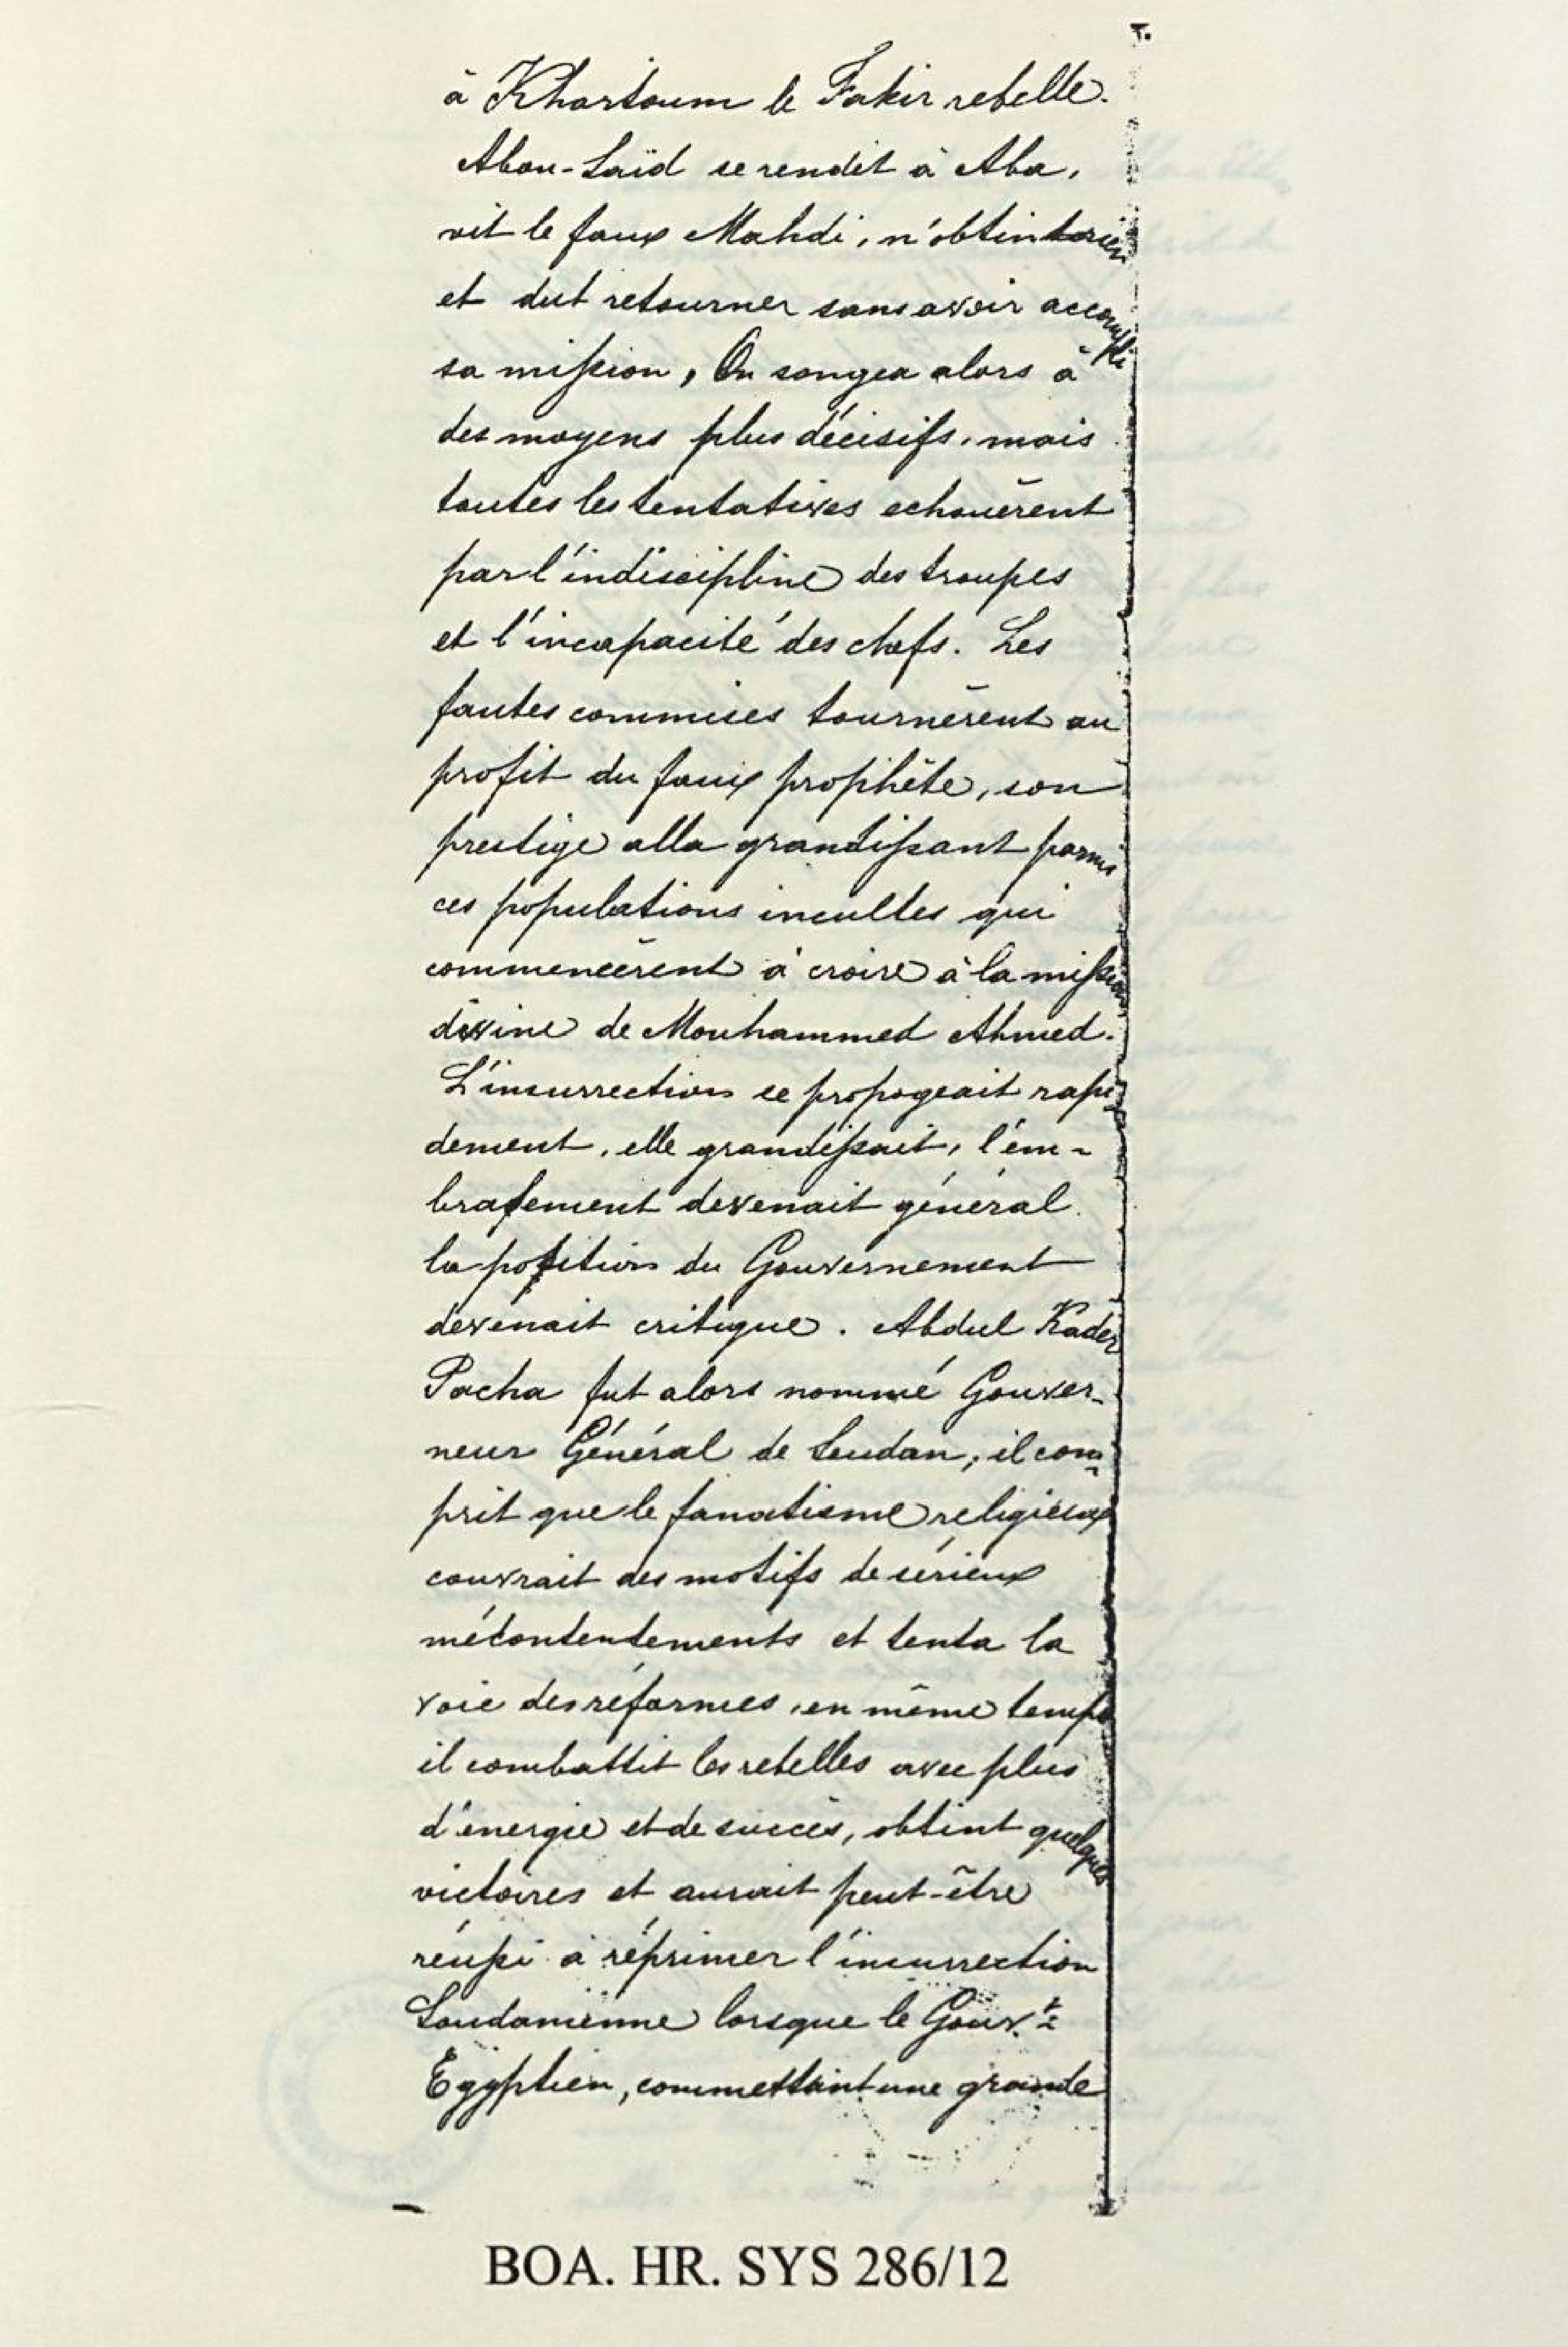 ٢٠
à Khartoum le Fakir rebelle.
Abou-Saïd se rendit à Aba,
vit le faux Mahdi, n'obtint rien
et dut retourner sans avoir accompli
sa mission, On songea alors à
des moyens plus décisifs, mais
toutes les tentatives echouèrent
par l'indiscipline des troupes
et l'incapacité des chefs. Les
fautes commises tournèrent au
profit du faux prophète, son
prestige alla grandissant parmi
ces populations incultes qui
commencèrent à croire à la mission
divine de Mouhammed Ahmed.
L'insurrection se propageait rapi-
dement, elle grandissait, l'em-
brasement devenait général.
la position du Gouvernement
devenait critique. Abdul Kader
Pacha fut alors nommé Gouver-
neur Général de Soudan; il com-
prit que le fanatisme religieux
couvrait des motifs de sérieux
mécontentements et tenta la
voie des réformes, en même temps
il combattit les rebelles avec plus
d'énergie et de succès, obtint quelques
victoires et aurait peut-être
réussi à réprimer l'insurrection
Soudanienne lorsque le Gouv.t
Egyptien, commettant une grande
BOA. HR. SYS 286/12